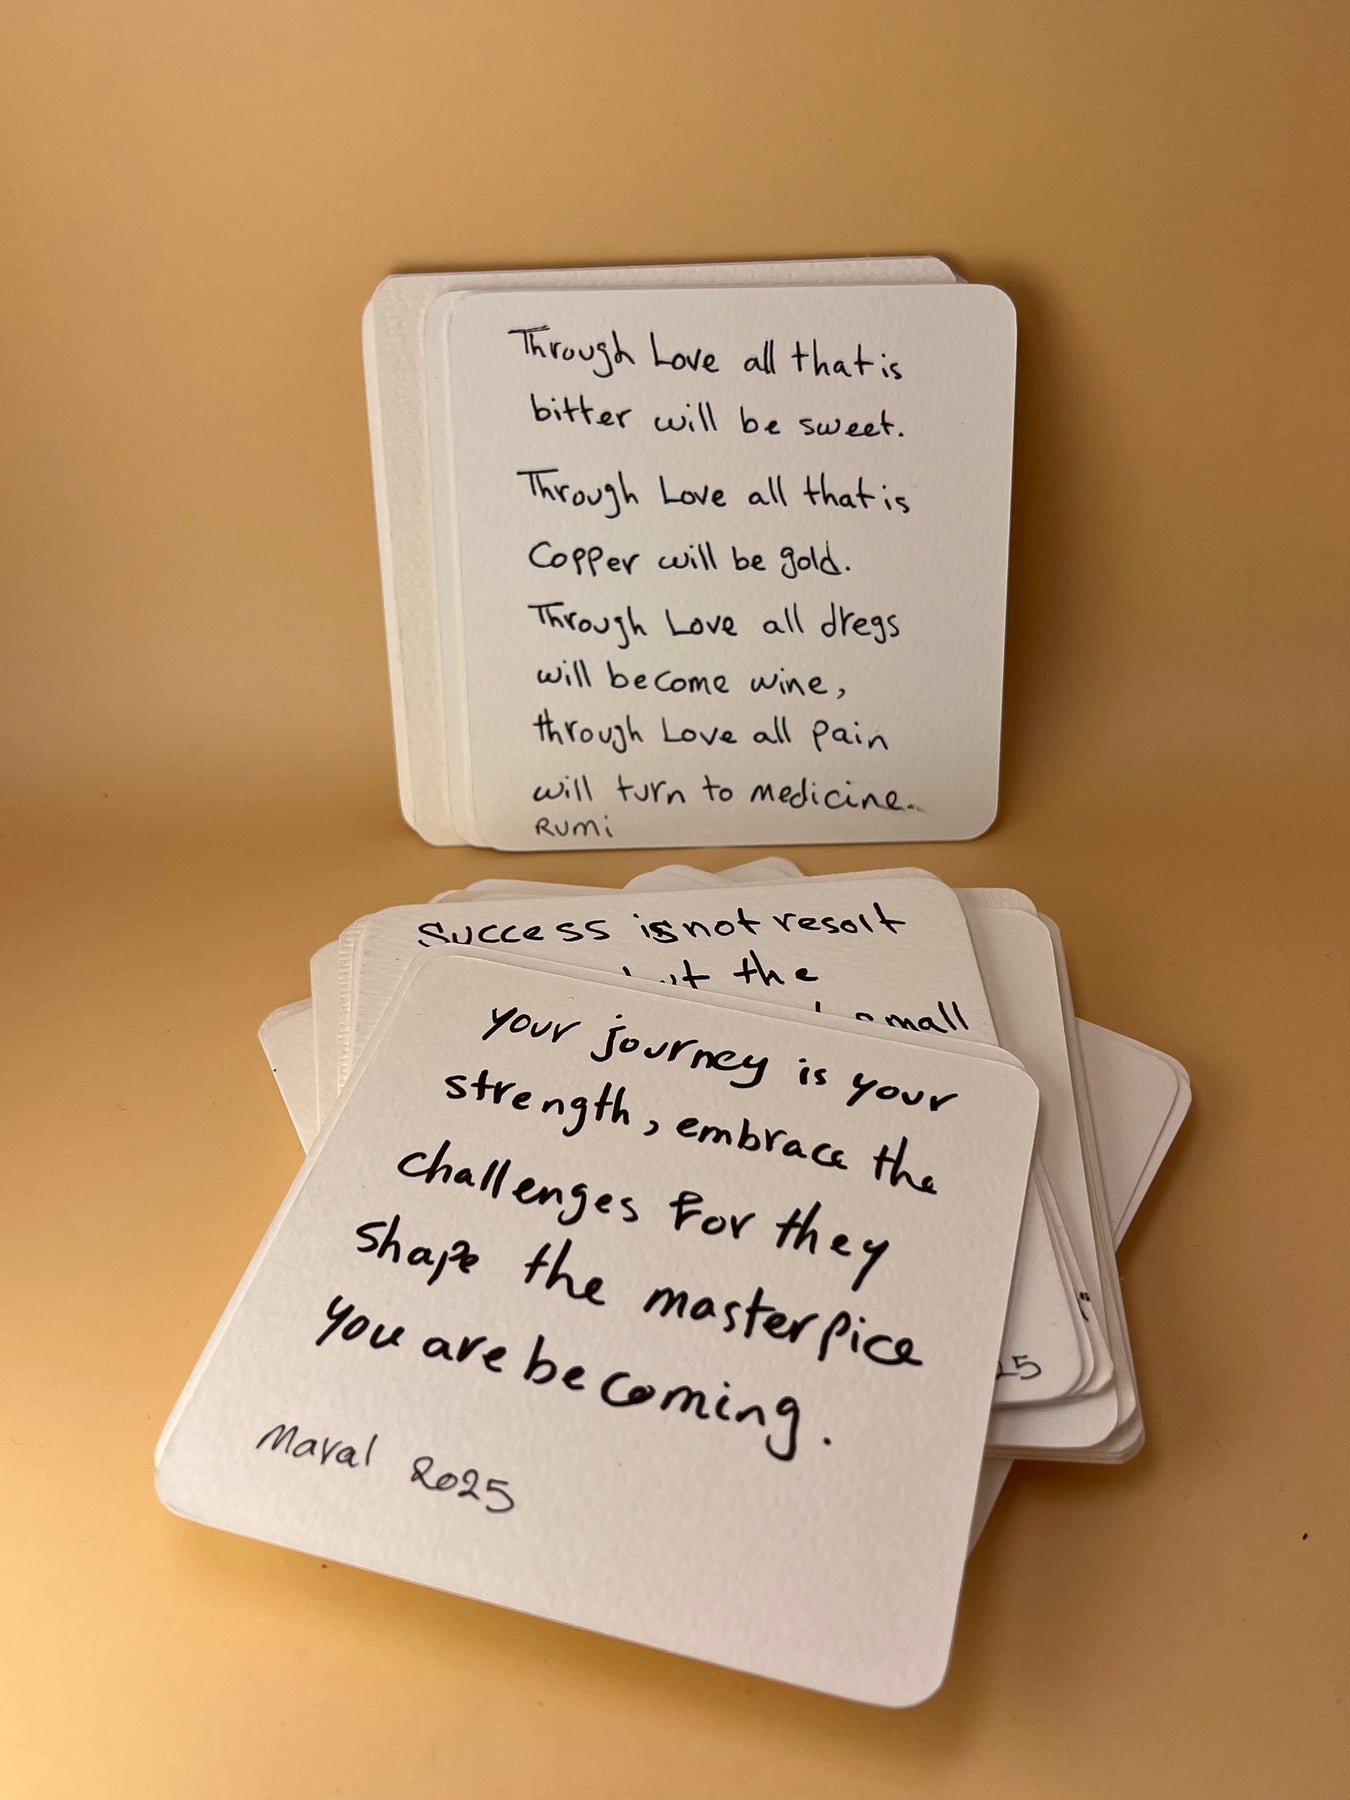 Through Love all that is
bitter will be sweet.
Through Love all that is
Copper will be gold.
Through Love all dregs
will become wine,
through Love all pain
will turn to medicine.
Rumi
Success is not resolt
the
small
your journey is your
strength, embrace the
challenges for they
shape the masterpice
you are becoming.
Maval 2025
25